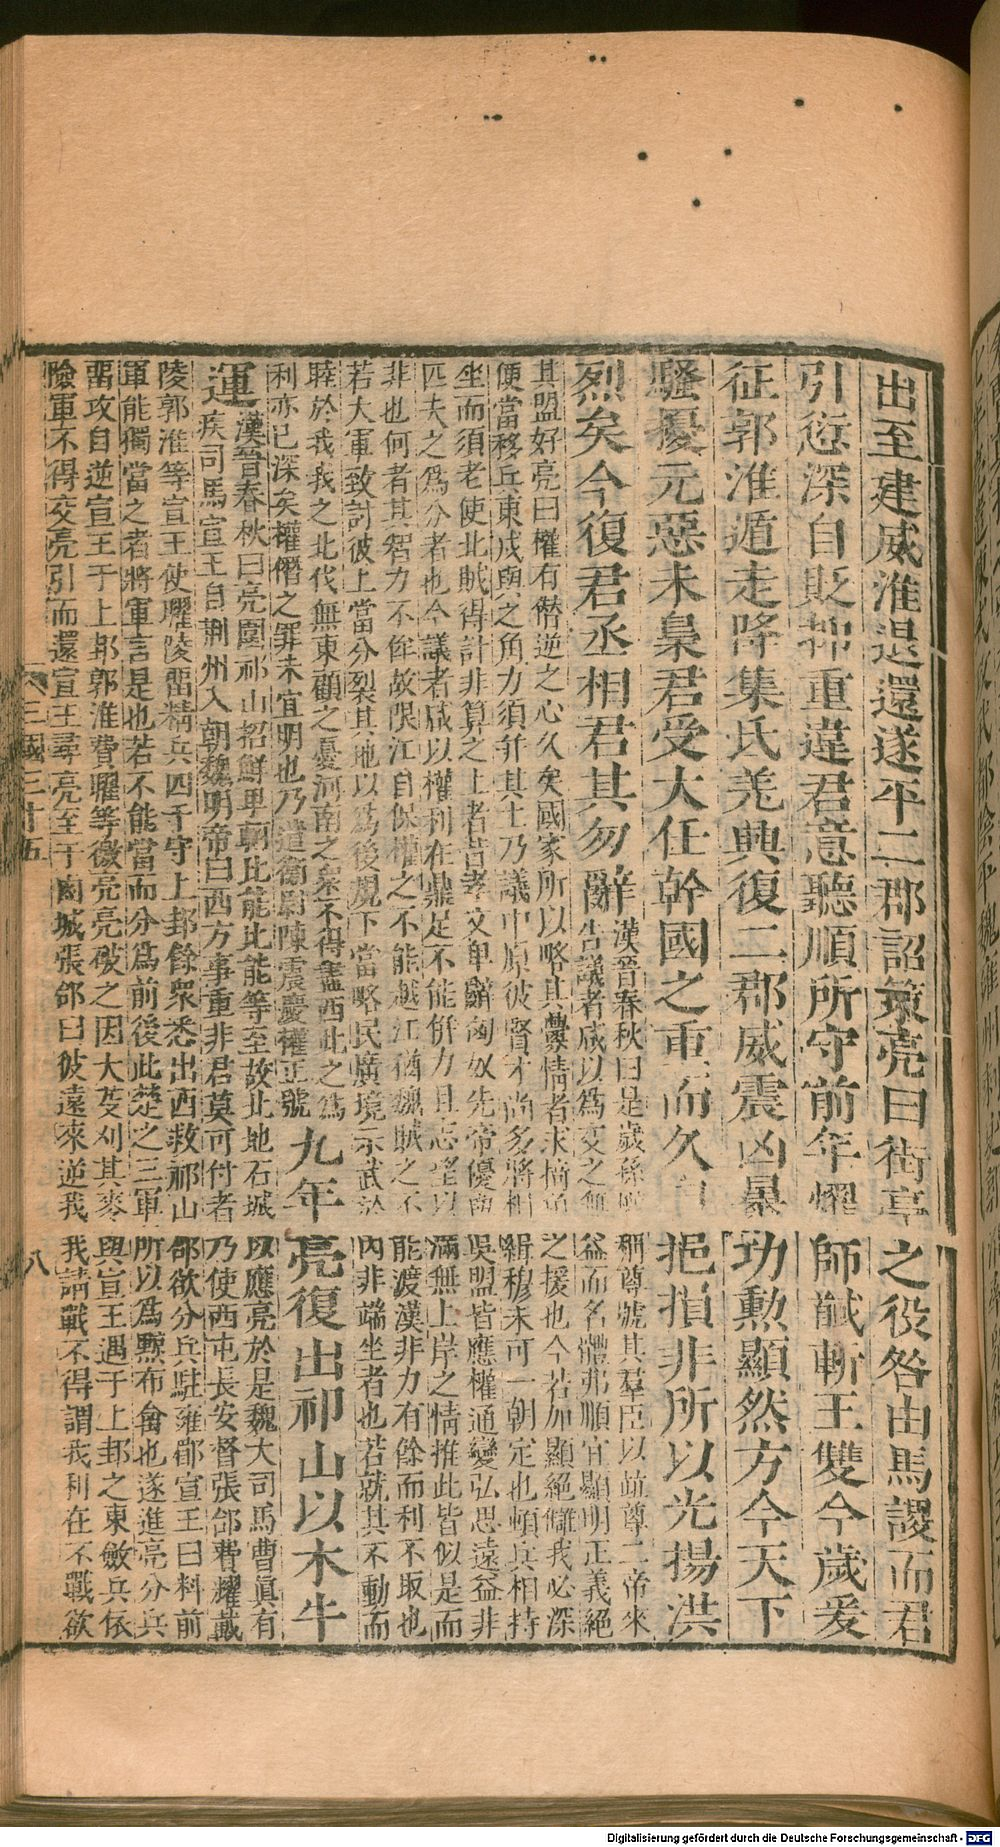 出至建威淮退還遂平二郡詔策亮曰街亭之役咎由馬謖而君
引愆深自貶抑重違君意聽順所守前年燿師馘斬王雙今歲爰
征郭淮遁走降集氐羌興復二郡威震凶暴功勳顯然方今天下
騷擾元惡未梟君受大任幹國之重而久自挹損非所以光揚洪
烈矣今復君丞相君其勿辭
漢晉春秋曰是歲孫權稱尊號其羣臣以並尊二帝來
告議者咸以爲交之無益而名體弗順宜顯明正義絕
其盟好亮曰權有僭逆之心久矣國家所以略其釁情者求掎角之援也今若加顯絕讎我必深
便當移兵東戍與之角力須幷其土乃議中原彼賢才尚多將相緝穆未可一朝定也頓兵相持
坐而須老使北賊得計非算之上者昔孝文卑辭匈奴先帝優與吳盟皆應權通變弘思遠益非
匹夫之爲分者也今議者咸以權利在鼎足不能併力且志望以滿無上岸之情推此皆似是而
非也何者其智力不侔故限江自保權之不能越江猶魏賊之不能渡漢非力有餘而利不取也
若大軍致討彼上當分裂其地以爲後規下當略民廣境示武於內非端坐者也若就其不動而
睦於我我之北伐無東顧之憂河南之衆不得盡西此之爲
利亦已深矣權僭之罪未宜明也乃遣衛尉陳震慶權正號
九年亮復出祁山以木牛
運
漢晉春秋曰亮圍祁山招鮮卑軻比能比能等至故北地石城以應亮於是魏大司馬曹眞有
疾司馬宣王自荊州入朝魏明帝曰西方事重非君莫可付者乃使西屯長安督張郃費耀戴
陵郭淮等宣王使曜陵畱精兵四千守上邽餘衆悉出西救祁山郃欲分兵駐雍郿宣王曰料前
軍能獨當之者將軍言是也若不能當而分爲前後此楚之三軍所以爲黥布禽也遂進亮分兵
畱攻自逆宣王于上邽郭淮費曜等徼亮亮破之因大芟刈其麥與宣王遇于上邽之東斂兵依
險軍不得交亮引而還宣王尋亮至于鹵城張郃曰彼遠來逆我我請戰不得謂我利在不戰欲
三國三十五
八
Digitalisierung gefördert durch die Deutsche Forschungsgemeinschaft - DFG